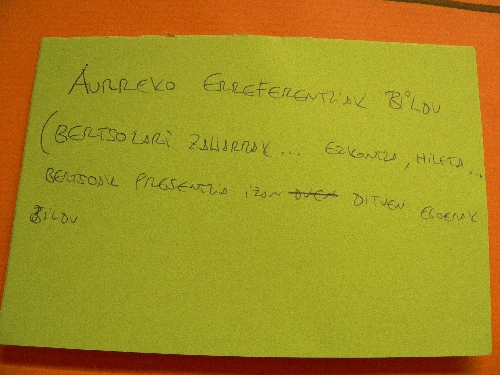 AURREKO ERREFERENTZIAK BILDU
(BERTSOLARI ZAHARRAK... EZKONTZA, HILETA...
BERTSOAK PRESENTZIA IZAN DUEN DITUEN EGOERAK
BILDU